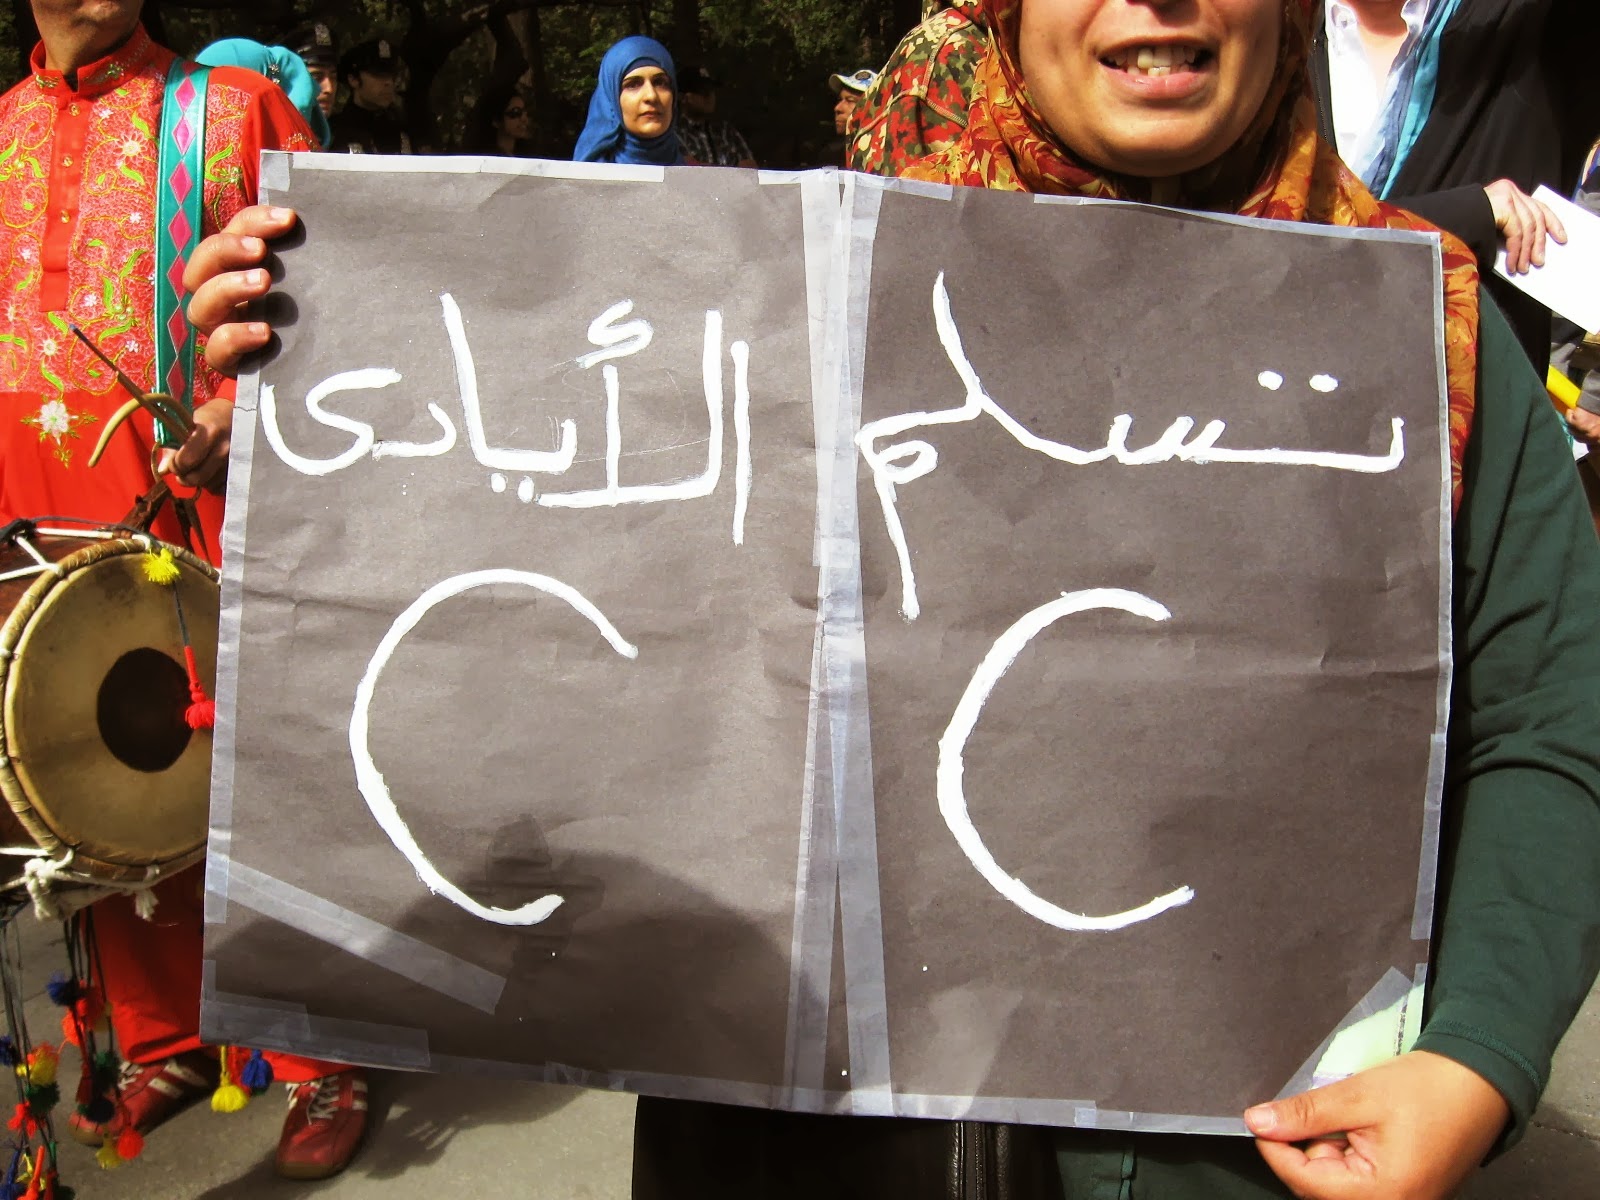 تسلم الأيادى
C C